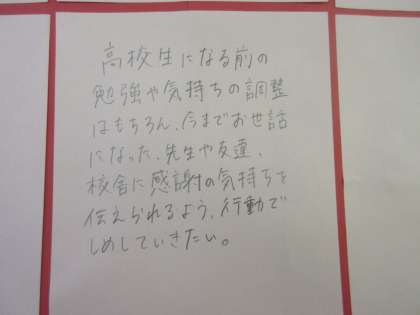 高校生になる前の
勉強や気持ちの調整
はもちろん、今までお世話
になった、先生や友達、
校舎に感謝の気持ちを
伝えられるよう、行動で
しめしていきたい。